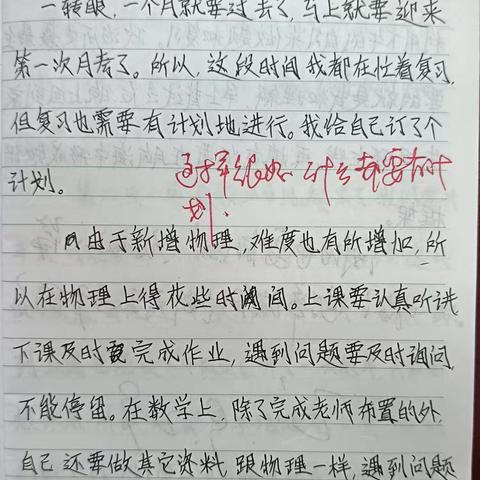 一转眼,一个月就要过去了,马上就要迎来
第一次月考了。所以,这段时间我都在忙着复习,
但复习也需要有计划地进行。我给自己订了个
计划。
这样很好 什么都要有计
划.
由于新增物理,难度也有所增加,所
以在物理上得花些时间。上课要认真听讲
下课及时完成作业,遇到问题要及时询问,
不能停留。在数学上,除了完成老师布置的外,
自己还要做其它资料,跟物理一样,遇到问题